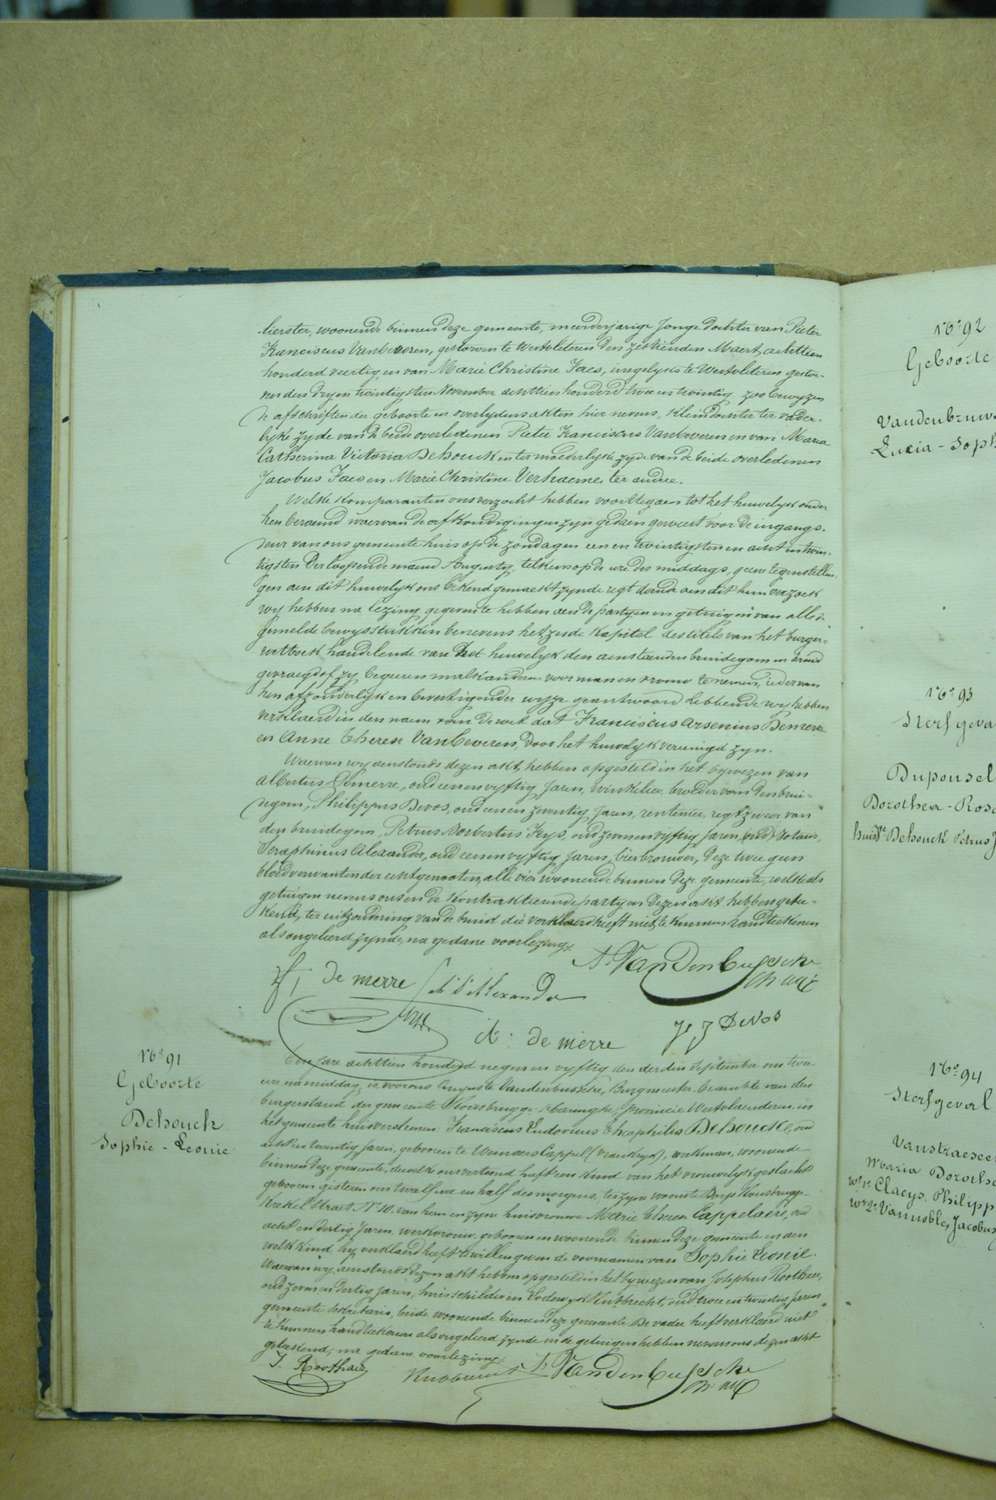 herster, woonende binnen deze gemeente, meerderjarige Jonge dochter van Pieter
Franciscus Vanbeveren, gestorven te Westvleteren den zestienden Maert achttien
honderd veertig en van Marie Christine Faes, insgelyks te Westvleteren gestor-
ven den dryen twintigsten November achttien honderd twee en twintig, zoo bewyzen
de afschriften der geboorte en overlydens akten hier nevens, kleindochter ter vader-
lyke zyde van de beide overledenen Pieter Franciscus Vanbeveren en van Maria
Catherina Victoria Dehouck en ter moederlyke zyde van de beide overledenen
Jacobus Faes en Marie Christine Verhaeme, ter andre.
Welke komparanten ons verzocht hebben voorttegaen tot het huwelyk onder
hen beraemd waervan de afkondigingen zyn gedaen geweest voor de ingangs-
deur van ons gemeente huis op de zondagen een en twintigsten en acht en twin-
tigsten der loopende maend Augusty, telkens op de ure des middags, geene tegenstellin-
gen aen dit huwelyk ons bekend gemaekt zynde regt doende aen dit hun verzoek
wy hebben na lezing gegeven te hebben aen de partyen en getuigen van alle de
gemelde bewysstukken benevens het zesde kapitel des titels van het burger-
wetboek handelende van het huwelyk den aenstaenden bruidegom en bruid
gevraegd of zy begeeren malkanderen voor man en vrouw te nemen, ieder van
hen afzonderlyk en bevestigender wyze geantwoord hebbende wy hebben
verklaerd in den naem van de wet dat Franciscus Arsenius Demerre
en Anne Therese Vanbeveren, door het huwelyk vereenigd zyn.
Waervan wy aenstonds dezen akt hebben opgesteld in het bywezen van
Albertus Demerre, oud een en vyftig Jaren, winkelier, broeder van den brui-
degom, Philippus Devos, oud een en zeventig Jaren, rentenier, regtzweer van
den bruidegom, Petrus Norbertus Feys, oud zes en vyftig Jaren,
Seraphinus Alexander, oud een en vyftig Jaren, bierbrouwer, deze twee geen
bloedverwanten der echtgenooten, alle vier woonende binnen deze gemeente, welke als
getuigen nevens ons en de kontrakteerende partyen dezen akt hebben gete-
kend, ter uitzondering van de bruid die verklaerd heeft niet te kunnen handteekenen
als ongeleerd zynde, na gedane voorlezing.
A. Vandenbussche
F, de merre S. Alexander
A: de merre Ph J Devos
N°. 91
Geboorte
Dehouck
Sophie - Leonie
Ten jare achttien honderd negen en vyftig den derden September om twee
uren namiddag, is voor ons Auguste Vandenbussche, Burgmeester beambte van den
burgerstand der gemeente Roesbrugge-Haringhe, provincie Westvlaenderen in
het gemeente huis verschenen Franciscus Ludovicus Theophilus Dehoucke, oud
acht en twintig Jaren, geboren te Wunders Cappel (Frankryk), werkman, woonende
binnen deze gemeente, dewelke ons vertoond heeft een kind van het vrouwelyk geslacht
geboren gisteren om twalf ure en half des morgens, ter zyner woonste Roys Housbrugge-
Straet N° 10, van hem en zyne huisvrouwe Marie Therese Cappelaere, oud
acht en dertig Jaren, werkvrouw, geboren en woonende binnen deze gemeente en aen
welk kind hy verklaerd heeft te willen geven de voornamen van Sophie Leonie.
Waervan wy aenstonds dezen akt hebben opgesteld in het bywezen van Josephus Roothaer,
oud zeven en dertig Jaren, huisschilder en Lodewyk Hubrecht, oud twee en twintig Jaren
gemeente sekretaris, beide woonende binnen deze gemeente. De vader heeft verklaerd niet
te kunnen handteekenen als ongeleerd zynde en de getuigen hebben nevens ons dezen akt
geteekend, na gedane voorlezing.
J. Roothaer Hubrecht A. Vandenbussche
N°. 92
Geboorte
Lucia - Soph
N°. 93
Sterfgeva
Dupousel
Dorothea - Rosa
huisv. Dehouck Petrus J
N°. 94
Sterfgeval
Vanstraesee
Maria Dorothe
we 1e Claeys, Philipp
we 2e Vannobles, Jacobus